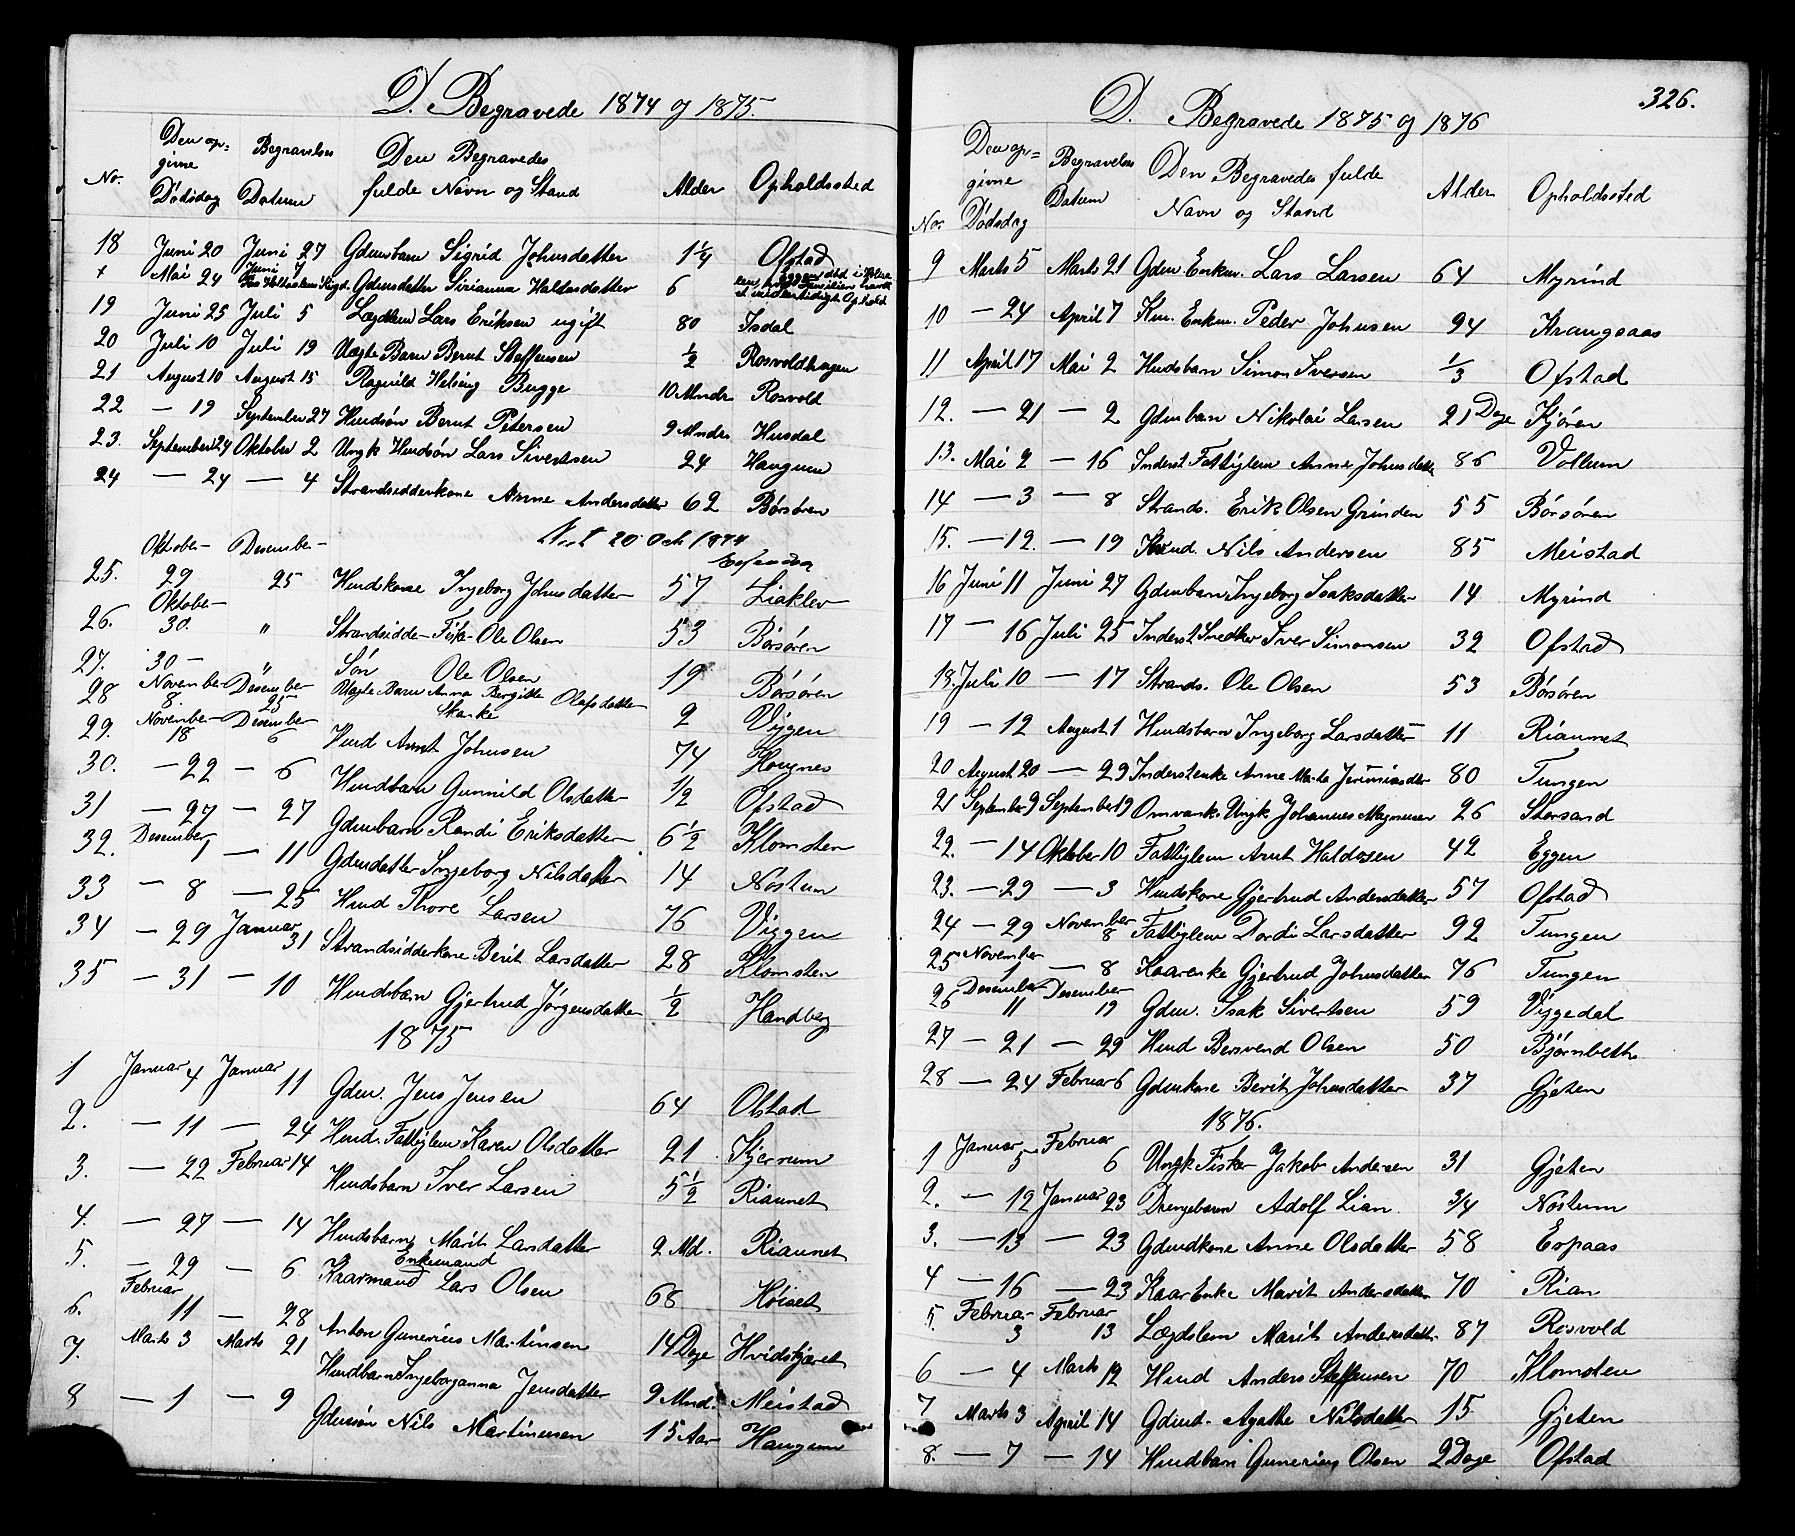 D. Begravede 1874 og 1875.
No. Den opgivne Dødsdag Begravelses Datum Den Begravedes fulde Navn og Stand Alder Opholdssted
18 Juni 20 Juni 27 Gdmbarn Sigrid Johnsdatter 1 1/4 Ofstad
+ Mai 24 Juni 7 Gdmsdatter Sirianna Haldosdatter 6
19 Juni 25 Juli 5 Lægdlem Lars Eriksen ugift 80 Isdal
20 Juli 10 Juli 19 Uægte Barn Bernt Steffensen 1/2 Rosvoldhagen
21 August 10 August 15 Ragnild Helsing Bugge 10 Mndr Rosvold
22 — 19 September 27 Hmdsøn Bernt Petersen 9 Mndr Husdal
23. September 24 Oktober 2 Ungk Hmdsøn Lars Sivertsen 24 Haugum
24 — 24 — 4 Strandsidderkone Anne Andersdatter 62 Børsøren
20 Oct 1874
25. Oktober 29 Desember 25 Husmdskone Ingeborg Johnsdatter 57 Liaklev
26. Oktober 30. " Strandsidder Fisk. Ole Olsen 53 Børsøren
27. 30 — " Søn Ole Olsen 19 Børsøren
28 November 8. Desember 25 Uægte Barn Anna Bergitte Olafsdatter Skarke 2 Viggen
29. November 18 Desember 6 Hmd Arnt Johnsen 74 Hougnes
30. — 22 — 6 Hmdbarn Gunnild Olsdatter 1/2 Ofstad
31 — 27 — 27 Gdmbarn Randi Eriksdatter 6 1/2 Klomsten
32. Desember 1 — 11 Gdmdatter Ingeborg Nilsdatter 14 Nostum
33 — 8 — 25 Hmd Thore Larsen 76 Viggen
34 — 29 Januar 31 Strandsidderkone Berit Larsdatter 28 Klomsten
35 — 31 — 10 Hmdsbarn Gjertrud Jørgensdatter 1/2 Handberg
1875
1 Januar 4 Januar 11 Gdm. Jens Jensen 64 Olstad
2. — 11 — 24 Hmd. Fattiglem Karen Olsdatter 21 Skjerum
3. — 22 Februar 14 Hmdsbarn Iver Larsen 5 1/2 Riaunet
4. — 27 — 14 Hmdsbarn Marit Larsdatter 2 Md. Riaunet
5. — 29 — 6 Enkemand Kaarmand Lars Olsen 68 Høiset
6. Februar 11 — 28 Anton Gunerius Martinsen 14 Dage Hvidskjæret
7. Marts 3 Marts 21 Hmdbarn Ingeborganna Jensdatter 9 Mnd. Meistad
8 — 1 — 9 Gdmsøn Nils Martinusen 15 Aar Haugum
326.
D. Begravede 1875 og 1876
No. Den opgivne Dødsdag Begravelses Datum Den Begravedes fulde Navn og Stand Alder Opholdssted
9 Marts 5 Marts 21 Gdm Enkem. Lars Larsen 64 Myrind
10 — 24 April 7 Hm. Enkm. Peder Johnsen 94 Krangsaas
11 April 17 Mai 2 Hmdsbarn Simon Iversen 1/3 Ofstad
12. — 21 — 2 Gdmbarn Nikolai Larsen 21 Dage Kjøren
13. Mai 2 — 16 Inderst Fattiglem Anne Johnsdatter 86 Vollum
14 — 3 — 8 Strands. Erik Olsen Grinden 55 Børsøren
15. — 12. — 19 Hmd. Nils Andersen 85 Meistad
16 Juni 11 Juni 27 Gdmbarn Ingeborg Isaksdatter 14 Myrind
17 — 16 Juli 25 Inderst Snedker Iver Simonsen 32 Ofstad
18. Juli 10 — 17 Strands. Ole Olsen 53 Børsøren
19 — 12 August 1 Hmdsbarn Ingeborg Larsdatter 11 Riaunet
20 August 20 — 29 Inderstenke Anne Marta Jerimiasdtr 80 Tungen
21 September 9 September 19 Omvank. Ungk Johannes Magnusen 26 Storsand
22. — 14 Oktober 10 Fattiglem Arnt Haldosen 42 Eggen
23. — 29 — 3 Hmdskone Gjertrud Andersdatter 57 Ofstad
24 — 29 November 8 Fattiglem Dordi Larsdatter 92 Tungen
25 November 1 — 8 Kaarenke Gjertrud Johnsdatter 76 Tungen
26 Desember 11 Desember 19 Gdm. Isak Sivertsen 59 Viggedal
27 — 21 — 29 Hmd Bersvend Olsen 50 Bjørnbeth
28 — 24 Februar 6 Gdmkone Berit Johnsdatter 37 Gjeten
1876.
1 Januar 5 Februar 6 Ungk Fisker Jakob Andersen 31 Gjeten
2. — 12 Januar 23 Drengebarn Adolf Lian. 3/4 Nostum
3. — 13 — 23 Gdmdkone Anne Olsdatter 58 Espaas
4 — 16 — 23 Kaar Enke Marit Andersdatter 70 Rian
5. Februar 3 Februar 13 Lægdslem Marit Andersdatter 87 Rosvold
6 — 4 Marts 12 Hmd Anders Steffensen 70 Klomsten
7 Marts 3 April 14 Gdmd. Agathe Nilsdatter 15 Gjeten
8. — 7 — 14 Hmdbarn Gunerius Olsen 2 Dage Ofstad